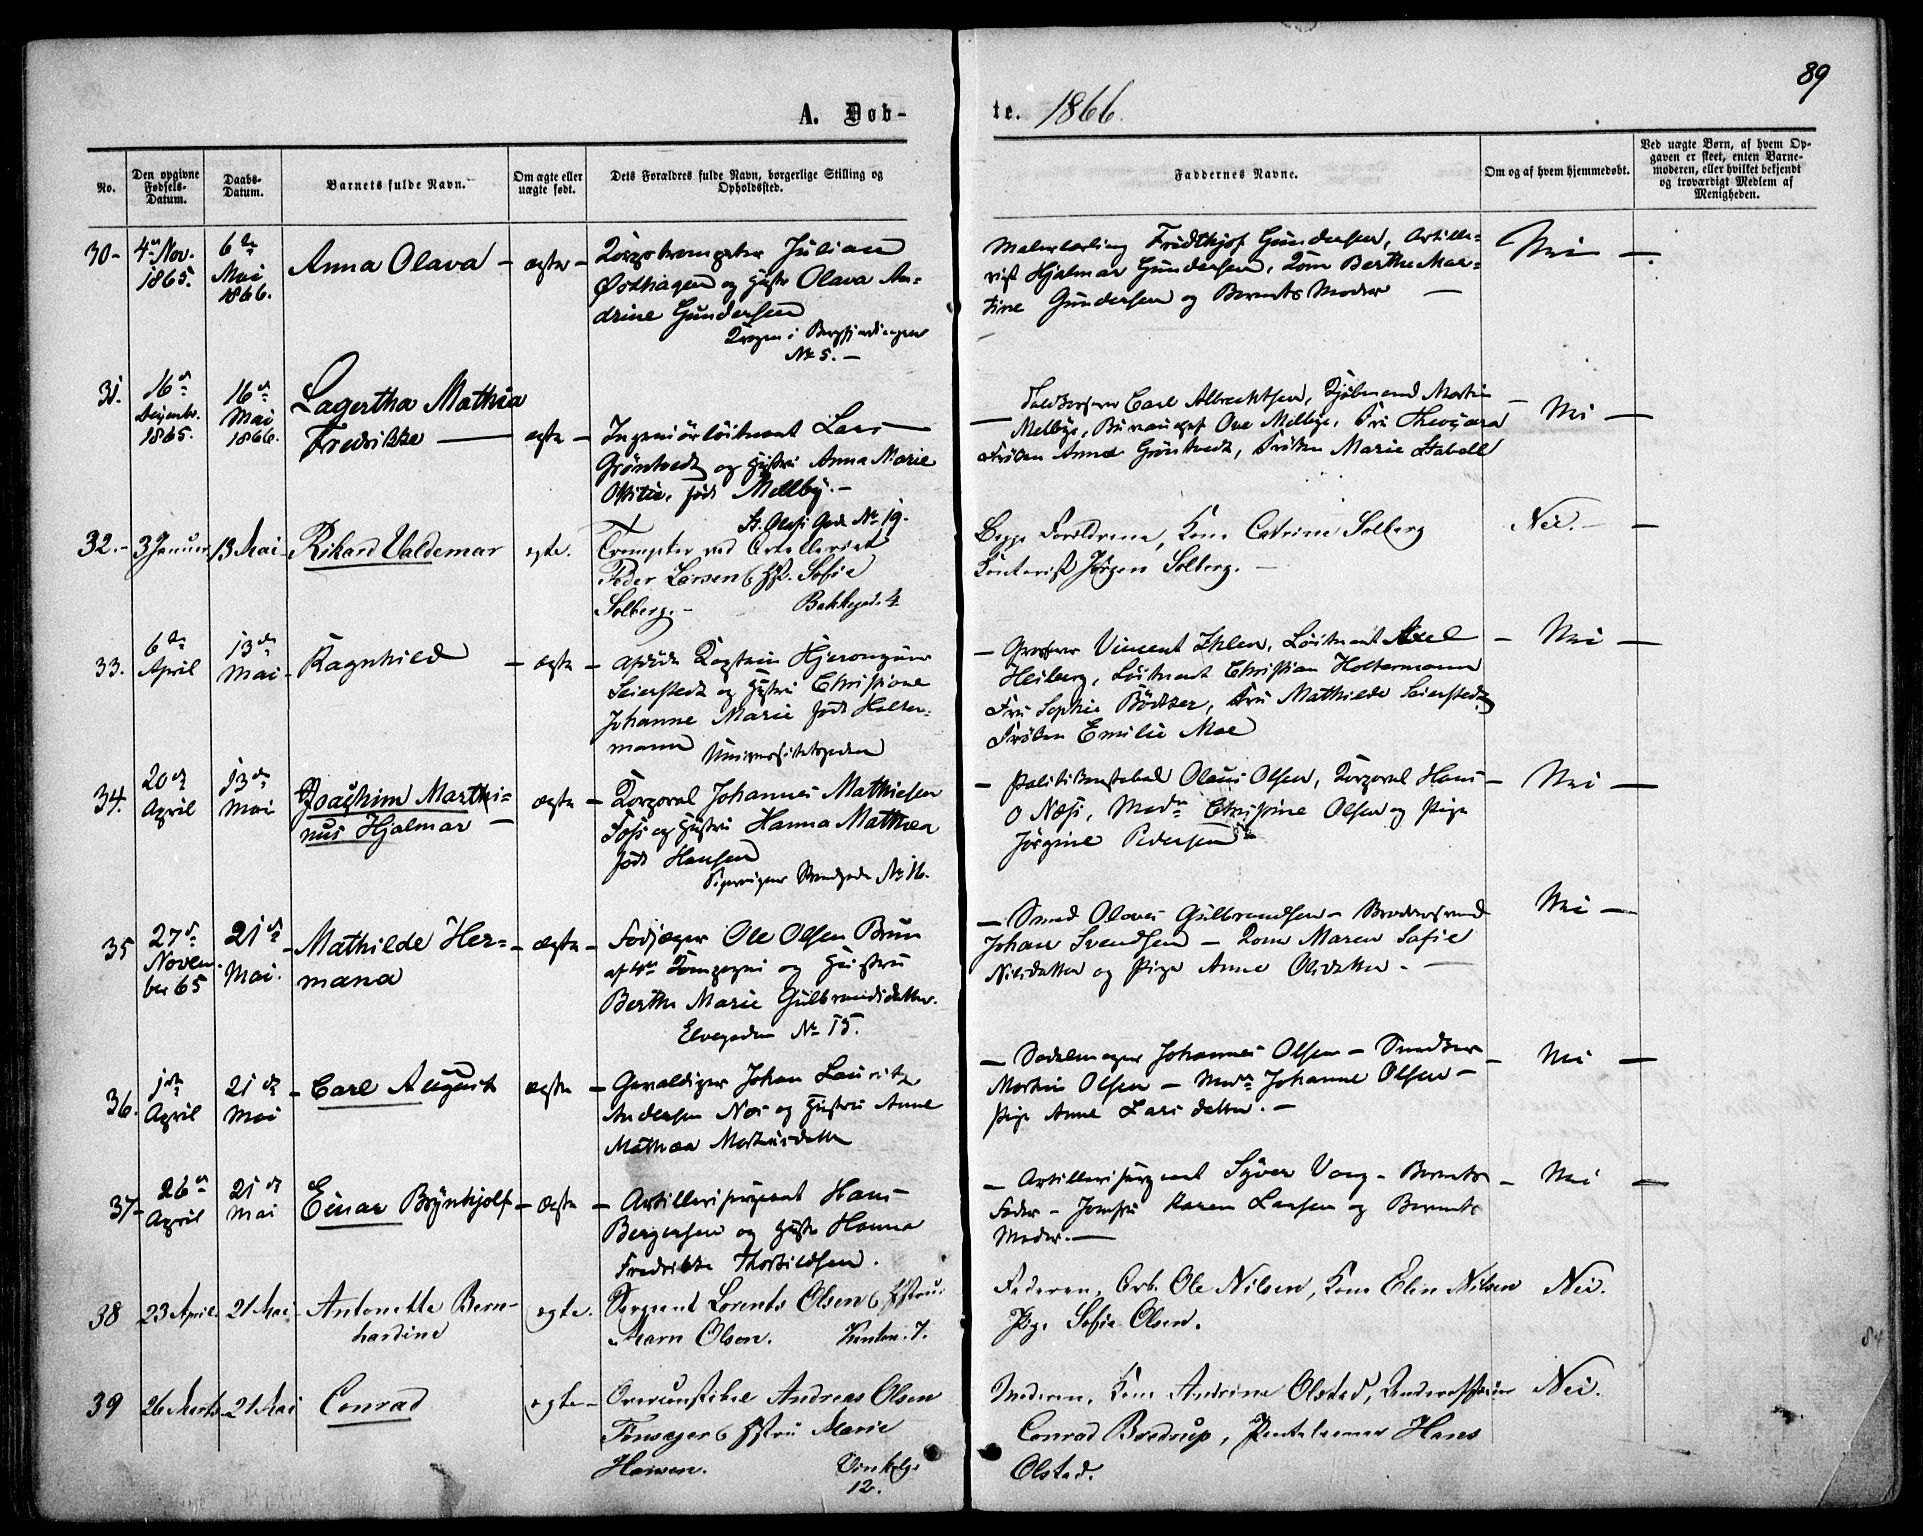 89
A. Døb-
te. 1866.
No.
Den opgivne Fødsels-Datum.
Daabs-Datum.
Barnets fulde Navn.
Om ægte eller uægte født.
Dets Forældres fulde Navn, borgerlige Stilling og Opholdssted.
Faddernes Navne.
Om og af hvem hjemmedøbt.
Ved uægte Børn, af hvem Op-
gaven er skeet, enten Barne-
moderen, eller hvilket bekjendt
og troværdigt Medlem af
Menigheden.
30 - 4de Nov. 1865. 6te Mai 1866. Anna Olava - ægte -
Julian
Østhagen og Hustr Olava An-
drine Gundersen
No 5. -
Malerlærling Fridthjof Gundersen, Artille-
rist Hjalmar Gundersen, Kone Berthe Mar-
tine Gundersen og Barnets Moder -
Nei -
31. 16de Decembr. 1865. 16de Mai 1866. Lagertha Mathea
Fredrikke - ægte -
Ingeniørløitnant Lars
Grøntvedt og Hustru Anna Marie
Otilie, født Mellby. -
St. Olafs Gade No 19.
Carl Albrechtsen, Kjøbmand Martin
Melbye, Bureauchef Ove Melbye, Fru
Frøken Anna Grøntvedt, Frøken Marie Stabell
Nei -
32. - 3 Januar 13 Mai - Rikard Valdemar ægte.
Trompeter ved Artilleriet
Peder Larsen & Hst. Sofie
Solberg. - Bakkegad. 4
Begge Forældrene, Kone Catrine Solberg
Kontorist Jørgen Solberg. -
Nei. -
33. 6te April 13de Mai - Ragnhild - ægte -
Kaptein
Seierstedt og Hustru Christiane
Johanne Marie født Holter-
mann Universitetsgaden
- Grosserer Vincent Ihlen, Løitnant Axel
Heiberg, Løitnant Christian Holtermann
Fru Sophie Bødtker, Fru Mathilde Seierstedt,
Frøken Emilie Moe
Nei -
34. 20de April 13de Mai Joachim Marthi-
nus Hjalmar - ægte -
Korporal Johannes Mathiesen
Foss og Hustru Hanna Mathea
født Hansen
No 16.
- Politikonstabel Olaus Olsen, Korporal Hans
O Næss, Mad. Christine Olsen og Pige
Jørgine Pedersen
Nei -
35 27de Novem-
ber 65 21de Mai. - Mathilde Her-
mana - ægte -
Fodjæger Ole Olsen Brun
af 4de Kompagni og Hustru
Berthe Marie Gulbrandsdatter.
Elvegaden No 15.
- Smed Olaves Gulbrandsen -
Johan Svendsen - Kone Maren Sofie
Nilsdatter og Pige Anne Olsdatter. -
Nei -
36. 1ste April 21de Mai - Carl August ægte -
Gevaldiger Johan Lauritz
Andersen Næs og Hustru Anne
Mathea Mortensdatter
- Sadelmager Johannes Olsen -
Martin Olsen - Mad. Johanne Olsen -
Pige Anne Larsdatter. -
Nei -
37 - 26de April 21de Mai Einar Brynhjolf - ægte -
Artillerisergeant Hans
Bergersen og Hustr Hanna
Fredrikke Thorkildsen.
- Artillerisergeant Syver Vang - Barnets
Fader - Jomfru Karen Larsen og Barnets
Moder. -
Nei -
38 23 April. 21 Mai Antonette Bern-
hardine ægte.
Sergeant Lorents Olsen & Hstru:
Maren Olsen.
Faderen, Arb. Ole Nilsen, Kone Elin Nilsen
Pige Sofie Olsen.
Nei.
39 26 Marts - 21 Mai Conrad ægte -
Andreas Olsen
& Hstru Marie
Hansen.
12.
Moderen, Kone Andrine Olstad,
Conrad Bredrup, Hans
Olstad.
Nei.
84